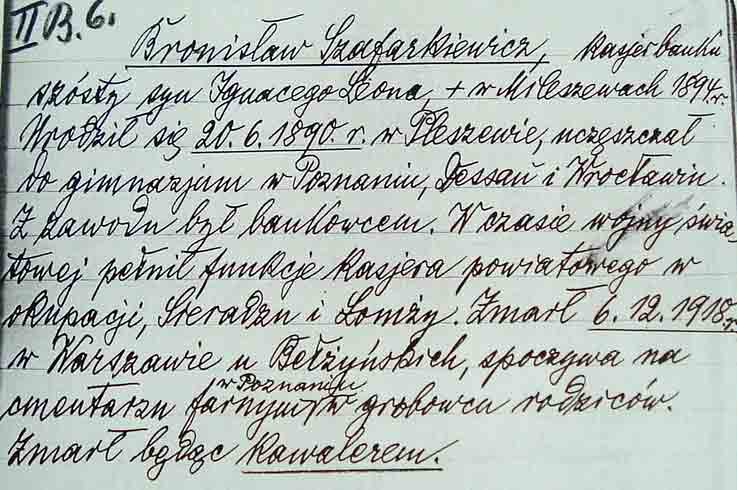 II B. 6.
Bronisław Szafarkiewicz, kasjer banku
szósty syn Ignacego Leona, + w Mileszewach 1894.r.
Urodził się 20. 6. 1890. r. w Pleszewie, uczęszczał
do gimnazjum w Poznaniu, Dessau i Wrocławiu.
Z zawodu był bankowcem. W czasie wojny świa-
towej pełnił funkcje kasjera powiatowego w
okupacji, Sieradzu i Łomży. Zmarł 6. 12. 1918.r
w Warszawie u Bełżyńskich, spoczywa na
w Poznaniu
cmentarzu farnym w grobowcu rodziców.
Zmarł będąc kawalerem.